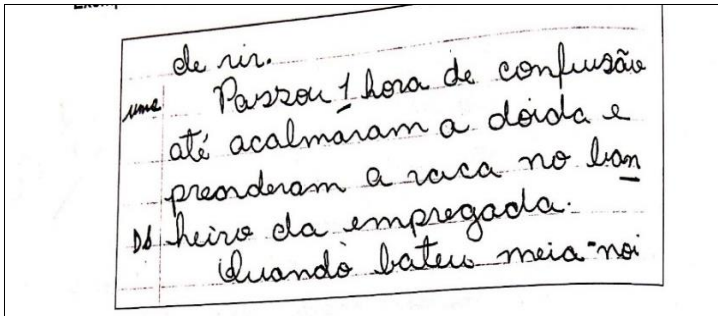 de rir.
uma Passou 1 hora de confusão
até acalmaram a doida e
preonderam a vaca no ban
DS heiro da empregada.
Quando bateu meia-noi